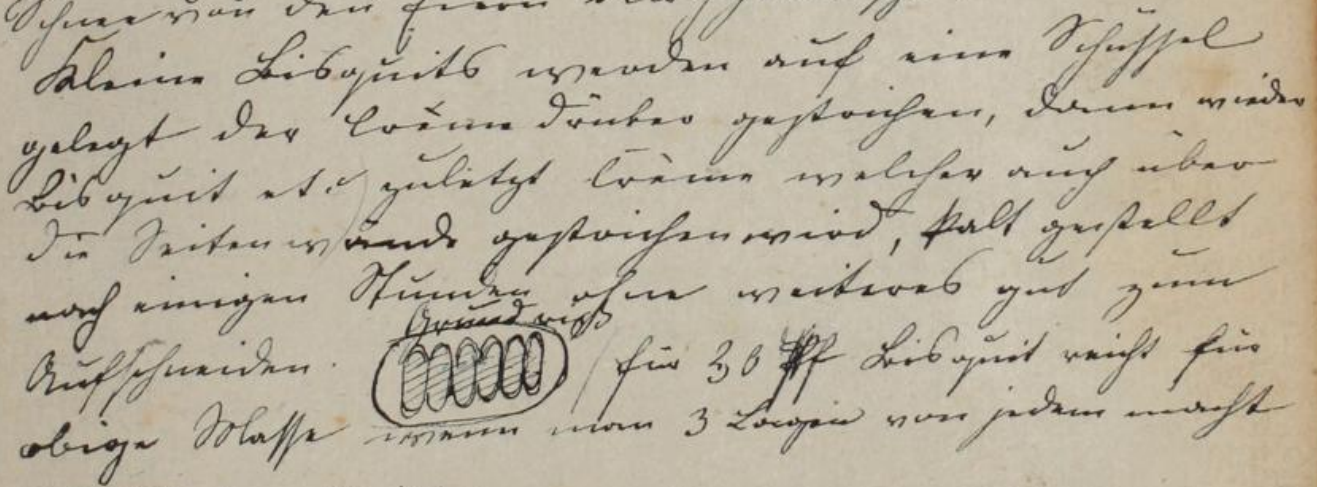 Schnee von den Eiern
Kleine Bisquits werden auf eine Schüssel
gelegt der Crème drüber gestrichen, dann wieder
Bisquit etc zuletzt Crème welcher auch über
die Seitenwände gestrichen wird, kalt gestellt
nach einigen Stunden ohne weiteres gut zum
Grundriß
Aufschneiden. für 30 Pf Bisquit reicht für
obige Masse wenn man 3 Lagen von jedem macht